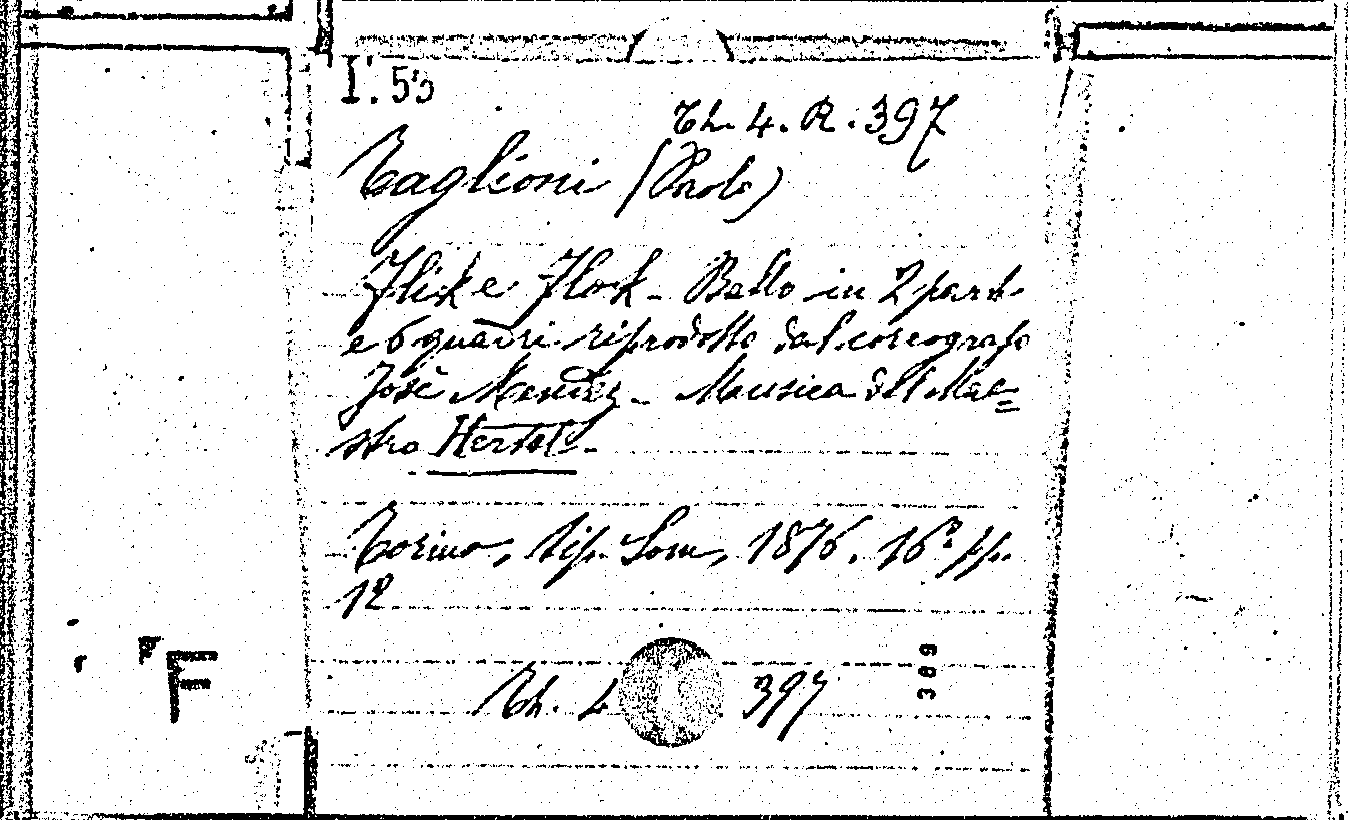 I'. 53
Th. 4. R. 397
Taglioni (Paolo)
Flik e Flok - Ballo in 2 parti
e 6 quadri riprodotto dal coreografo
Josè Mendez - Musica del Mae=
stro Hertel -
Torino, tip. Som, 1876. 16º pp.
12
Th. 4 397
389
F